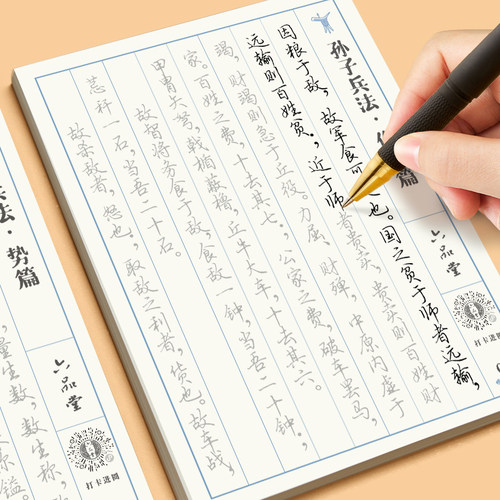 孙子兵法·篇
六品堂
因粮于敌，故军食可也。国之贫于师者远输，
远输则百姓贫，近于师者贵卖，贵卖则百姓财
竭，财竭则急于丘役。力屈、财殚，中原内虚于
家。百姓之费，十去其七；公家之费，破车罢马，
甲胄矢弩，戟楯蔽橹，丘牛大车，十去其六。
故智将务食于敌，食敌一钟，当吾二十钟；
萁秆一石，当吾二十石。
故杀敌者，怒也；取敌之利者，货也。故车战，
兵法·势篇
六品堂
量生数，数生称，